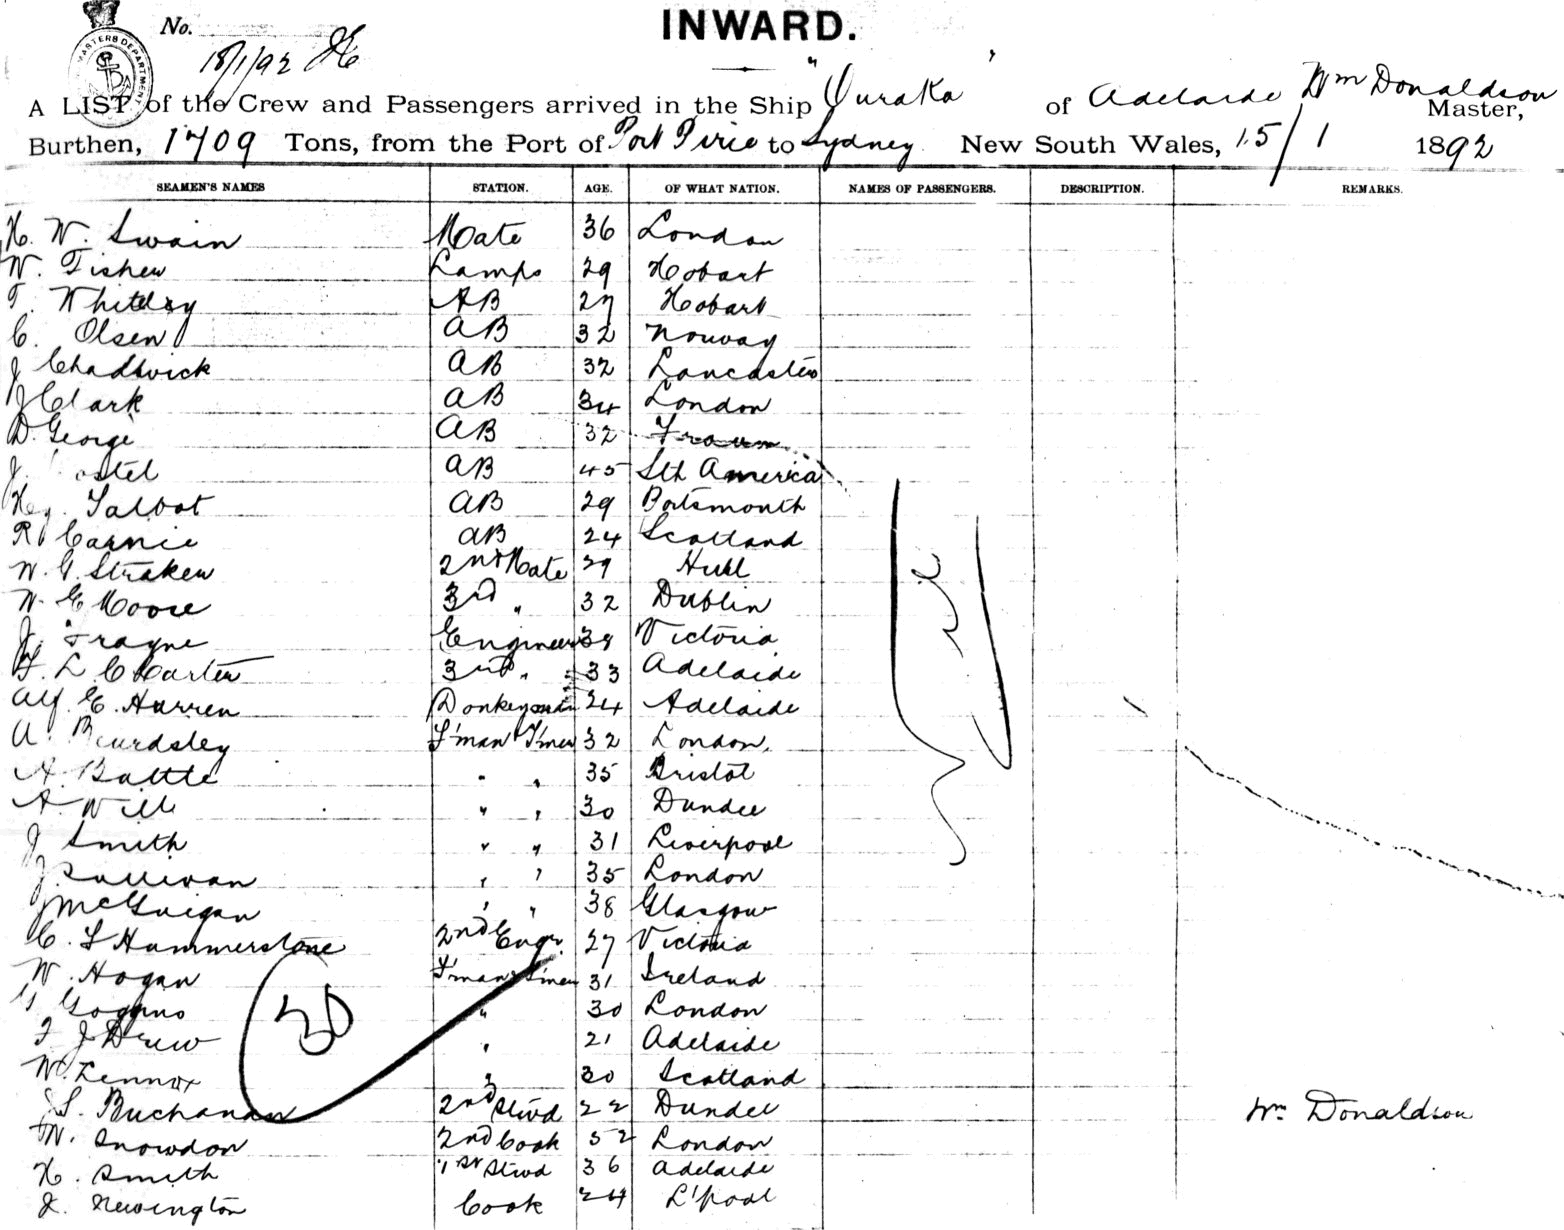 INWARD.
No.
18/1/92
MASTERS DEPARTMENT
A LIST of the Crew and Passengers arrived in the Ship "Ouraka" of Adelaide Wm Donaldson Master,
Burthen, 1709 Tons, from the Port of Port Pirie to Sydney New South Wales, 15/1 1892
SEAMEN'S NAMES STATION. AGE. OF WHAT NATION. NAMES OF PASSENGERS. DESCRIPTION. REMARKS.
H. W. Swain Mate 36 London
W. Fisher Lamps 29 Hobart
T. AB 27 Hobart
C. Olsen AB 32 Norway
J Chadwick AB 32 Lancaster
J Clark AB 34 London
D. George AB 32
J. AB 45 Sth America
Hy. Talbot AB 29 Portsmouth
R Carnie AB 24 Scotland
W. G. Straken 2nd Mate 29 Hull
W. E Moore 3rd " 32 Dublin
J. Trayne Engineer 38 Victoria
F. L. C Carter 3rd " 33 Adelaide
Alf. E. Harren Donkeyman 24 Adelaide
A. Beardsley F'man T'mer 32 London.
A. Battle " " 35 Bristol
A. Will " " 30 Dundee
J Smith " " 31 Liverpool
J. Sullivan " " 35 London
J McGuigan " " 38 Glasgow
C. F Hammerstone 2nd Engr. 27 Victoria
W. Hogan F'man T'mer 31 Ireland
G Goggins " 30 London
F J Drew " 21 Adelaide
W. Lennox " 30 Scotland
J. S. Buchanan 2nd Stwd 22 Dundee
W. Snowdon 2nd Cook 52 London
H. Smith 1st Stwd 36 Adelaide
J. Newington Cook 24 L'pool
nil
30
Wm Donaldson